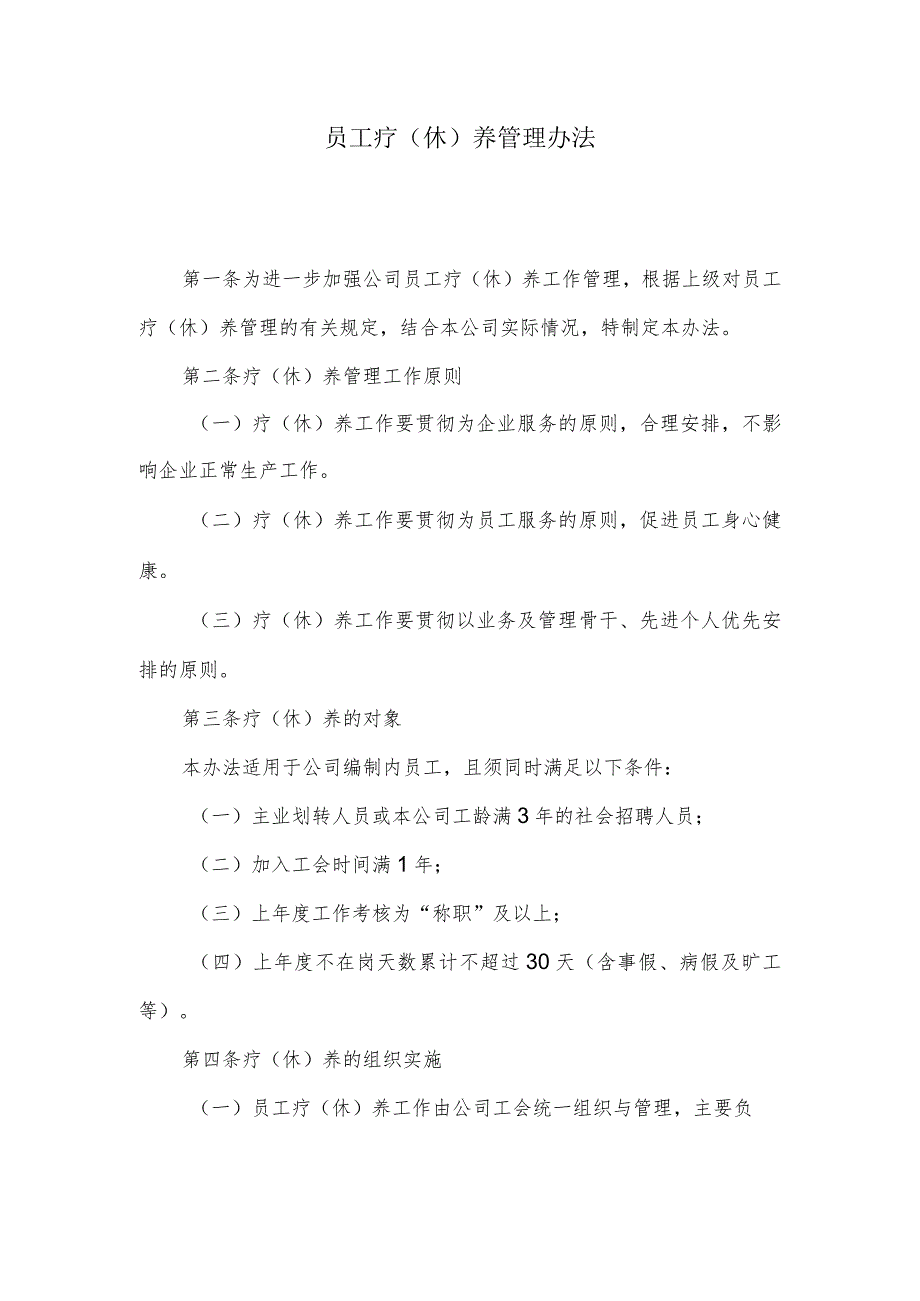 员工疗（休）养管理办法
第一条为进一步加强公司员工疗（休）养工作管理，根据上级对员工
疗（休）养管理的有关规定，结合本公司实际情况，特制定本办法。
第二条疗（休）养管理工作原则
（一）疗（休）养工作要贯彻为企业服务的原则，合理安排，不影
响企业正常生产工作。
（二）疗（休）养工作要贯彻为员工服务的原则，促进员工身心健
康。
（三）疗（休）养工作要贯彻以业务及管理骨干、先进个人优先安
排的原则。
第三条疗（休）养的对象
本办法适用于公司编制内员工，且须同时满足以下条件：
（一）主业划转人员或本公司工龄满3年的社会招聘人员；
（二）加入工会时间满1年；
（三）上年度工作考核为“称职”及以上；
（四）上年度不在岗天数累计不超过30天（含事假、病假及旷工
等）。
第四条疗（休）养的组织实施
（一）员工疗（休）养工作由公司工会统一组织与管理，主要负